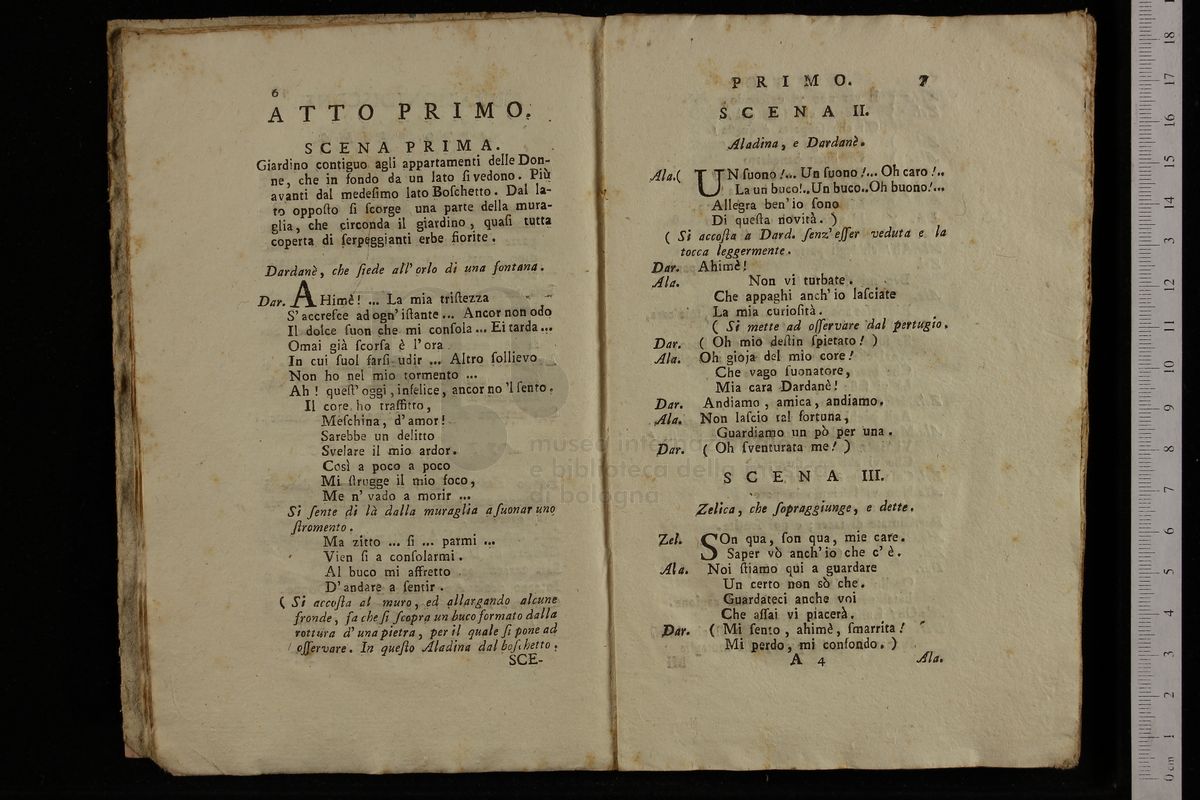 6
ATTO PRIMO.
SCENA PRIMA.
Giardino contiguo agli appartamenti delle Don-
ne, che in fondo da un lato ſi vedono. Più
avanti dal medeſimo lato Boſchetto. Dal la-
to oppoſto ſi ſcorge una parte della mura-
glia, che circonda il giardino, quaſi tutta
coperta di ſerpeggianti erbe fiorite.
Dardanè, che ſiede all' orlo di una fontana.
Dar. AHimè! ... La mia triſtezza
S' accreſce ad ogn' iſtante ... Ancor non odo
Il dolce ſuon che mi conſola ... Ei tarda ...
Omai già ſcorſa è l' ora
In cui ſuol farſi udir ... Altro ſollievo
Non ho nel mio tormento ...
Ah! queſt' oggi, infelice, ancor no 'l ſento.
Il core ho traffitto,
Meſchina, d' amor!
Sarebbe un delitto
Svelare il mio ardor.
Così a poco a poco
Mi ſtrugge il mio foco,
Me n' vado a morir ...
Si ſente di là dalla muraglia a ſuonar uno
ſtromento.
Ma zitto ... ſi ... parmi ...
Vien ſi a conſolarmi.
Al buco mi affretto
D' andare a ſentir.
( Si accoſta al muro, ed allargando alcune
fronde, fa che ſi ſcopra un buco formato dalla
rottura d' una pietra, per il quale ſi pone ad
oſſervare. In queſto Aladina dal boſchetto.
SCE-
PRIMO. 7
SCENA II.
Aladina, e Dardanè.
Ala. ( UN ſuono!... Un ſuono!... Oh caro!..
La un buco!.. Un buco.. Oh buono!...
Allegra ben' io ſono
Di queſta novità. )
( Si accoſta a Dard. ſenz' eſſer veduta e la
tocca leggermente.
Dar. Ahimè!
Ala. Non vi turbate.
Che appaghi anch' io laſciate
La mia curioſità.
( Si mette ad oſſervare dal pertugio.
Dar. ( Oh mio deſtin ſpietato! )
Ala. Oh gioja del mio core!
Che vago ſuonatore,
Mia cara Dardanè!
Dar. Andiamo, amica, andiamo.
Ala. Non laſcio tal fortuna,
Guardiamo un pò per una.
Dar. ( Oh ſventurata me! )
SCENA III.
Zelica, che ſopraggiunge, e dette.
Zel. SOn qua, ſon qua, mie care.
Saper vò anch' io che c' è.
Ala. Noi ſtiamo qui a guardare
Un certo non sò che.
Guardateci anche voi
Che aſſai vi piacerà.
Dar. ( Mi ſento, ahimè, ſmarrita!
Mi perdo, mi confondo. )
A 4 Ala.
museo internazionale
e biblioteca della musica
di bologna
0 cm 1 2 3 4 5 6 7 8 9 10 11 12 13 14 15 16 17 18